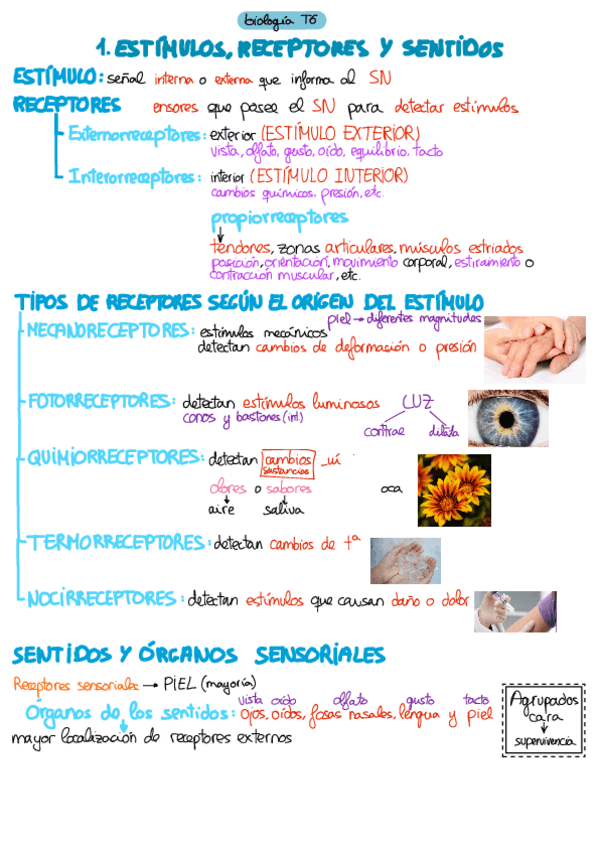 biología T6
1. ESTÍMULOS, RECEPTORES Y SENTIDOS
ESTÍMULO: señal interna o externa que informa al SN
RECEPTORES ensores que posee el SN para detectar estímulos
Externorreceptores: exterior (ESTÍMULO EXTERIOR)
vista, olfato, gusto, oído, equilibrio, tacto
Interorreceptores: interior (ESTÍMULO INTERIOR)
cambios químicos, presión, etc.
propiorreceptores
tendones, zonas articulares, músculos estriados
posición, orientación, movimiento corporal, estiramiento o
contracción muscular, etc.
TIPOS DE RECEPTORES SEGÚN EL ORIGEN DEL ESTÍMULO
MECANORRECEPTORES: estímulos mecánicos piel → diferentes magnitudes
detectan cambios de deformación o presión
FOTORRECEPTORES: detectan estímulos luminosos LUZ
conos y bastones (int.) contrae dilata
QUIMIORRECEPTORES: detectan cambios _uí
sustancias
olores o sabores oca
aire saliva
TERMORRECEPTORES: detectan cambios de tª
NOCIRRECEPTORES: detectan estímulos que causan daño o dolor
SENTIDOS Y ÓRGANOS SENSORIALES
Receptores sensoriales → PIEL (mayoría)
vista oído olfato gusto tacto
Órganos de los sentidos: ojos, oídos, fosas nasales, lengua y piel
mayor localización de receptores externos
Agrupados
cara
↓
supervivencia